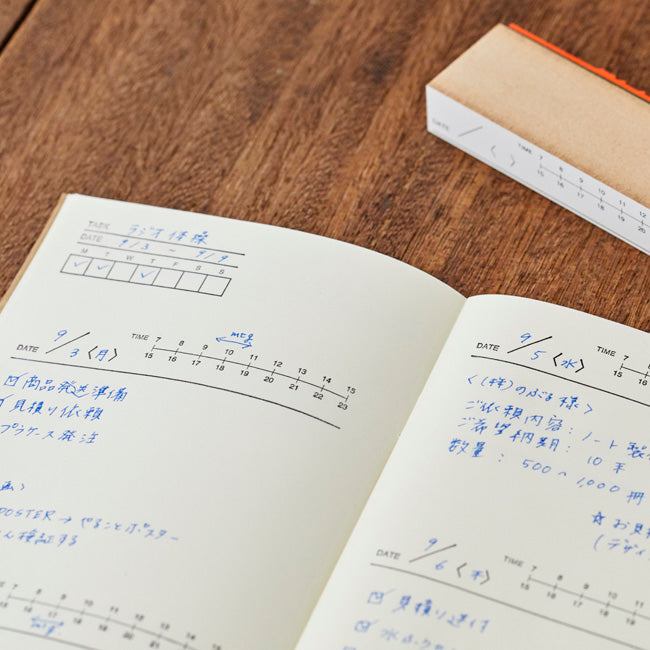 DATE / 〈 〉 TIME 7 8 9 10 11 12
15 16 17 18 19 20
TASK ラジオ体操
DATE 9/3 9/9
M T W T F S S
DATE 9/3〈月〉 TIME 7 8 9 10 11 12 13 14 15
15 16 17 18 19 20 21 22 23
mtg
商品発送準備
見積り依頼
プラケース発注
POSTER→やることポスター
検証する
7 8 9 10 11 12 13 14
15 16 17 18 19 20 21
mtg
DATE 9/5〈水〉 TIME 7 8
15 16
〈(株)のぶる様〉
ご依頼内容:ノート製
ご希望納期:10
数量:500〜1,000冊
☆お見
(デザイ
DATE 9/6〈木〉 TIME 7 8 9 10
15 16 17 18 19
見積り送付